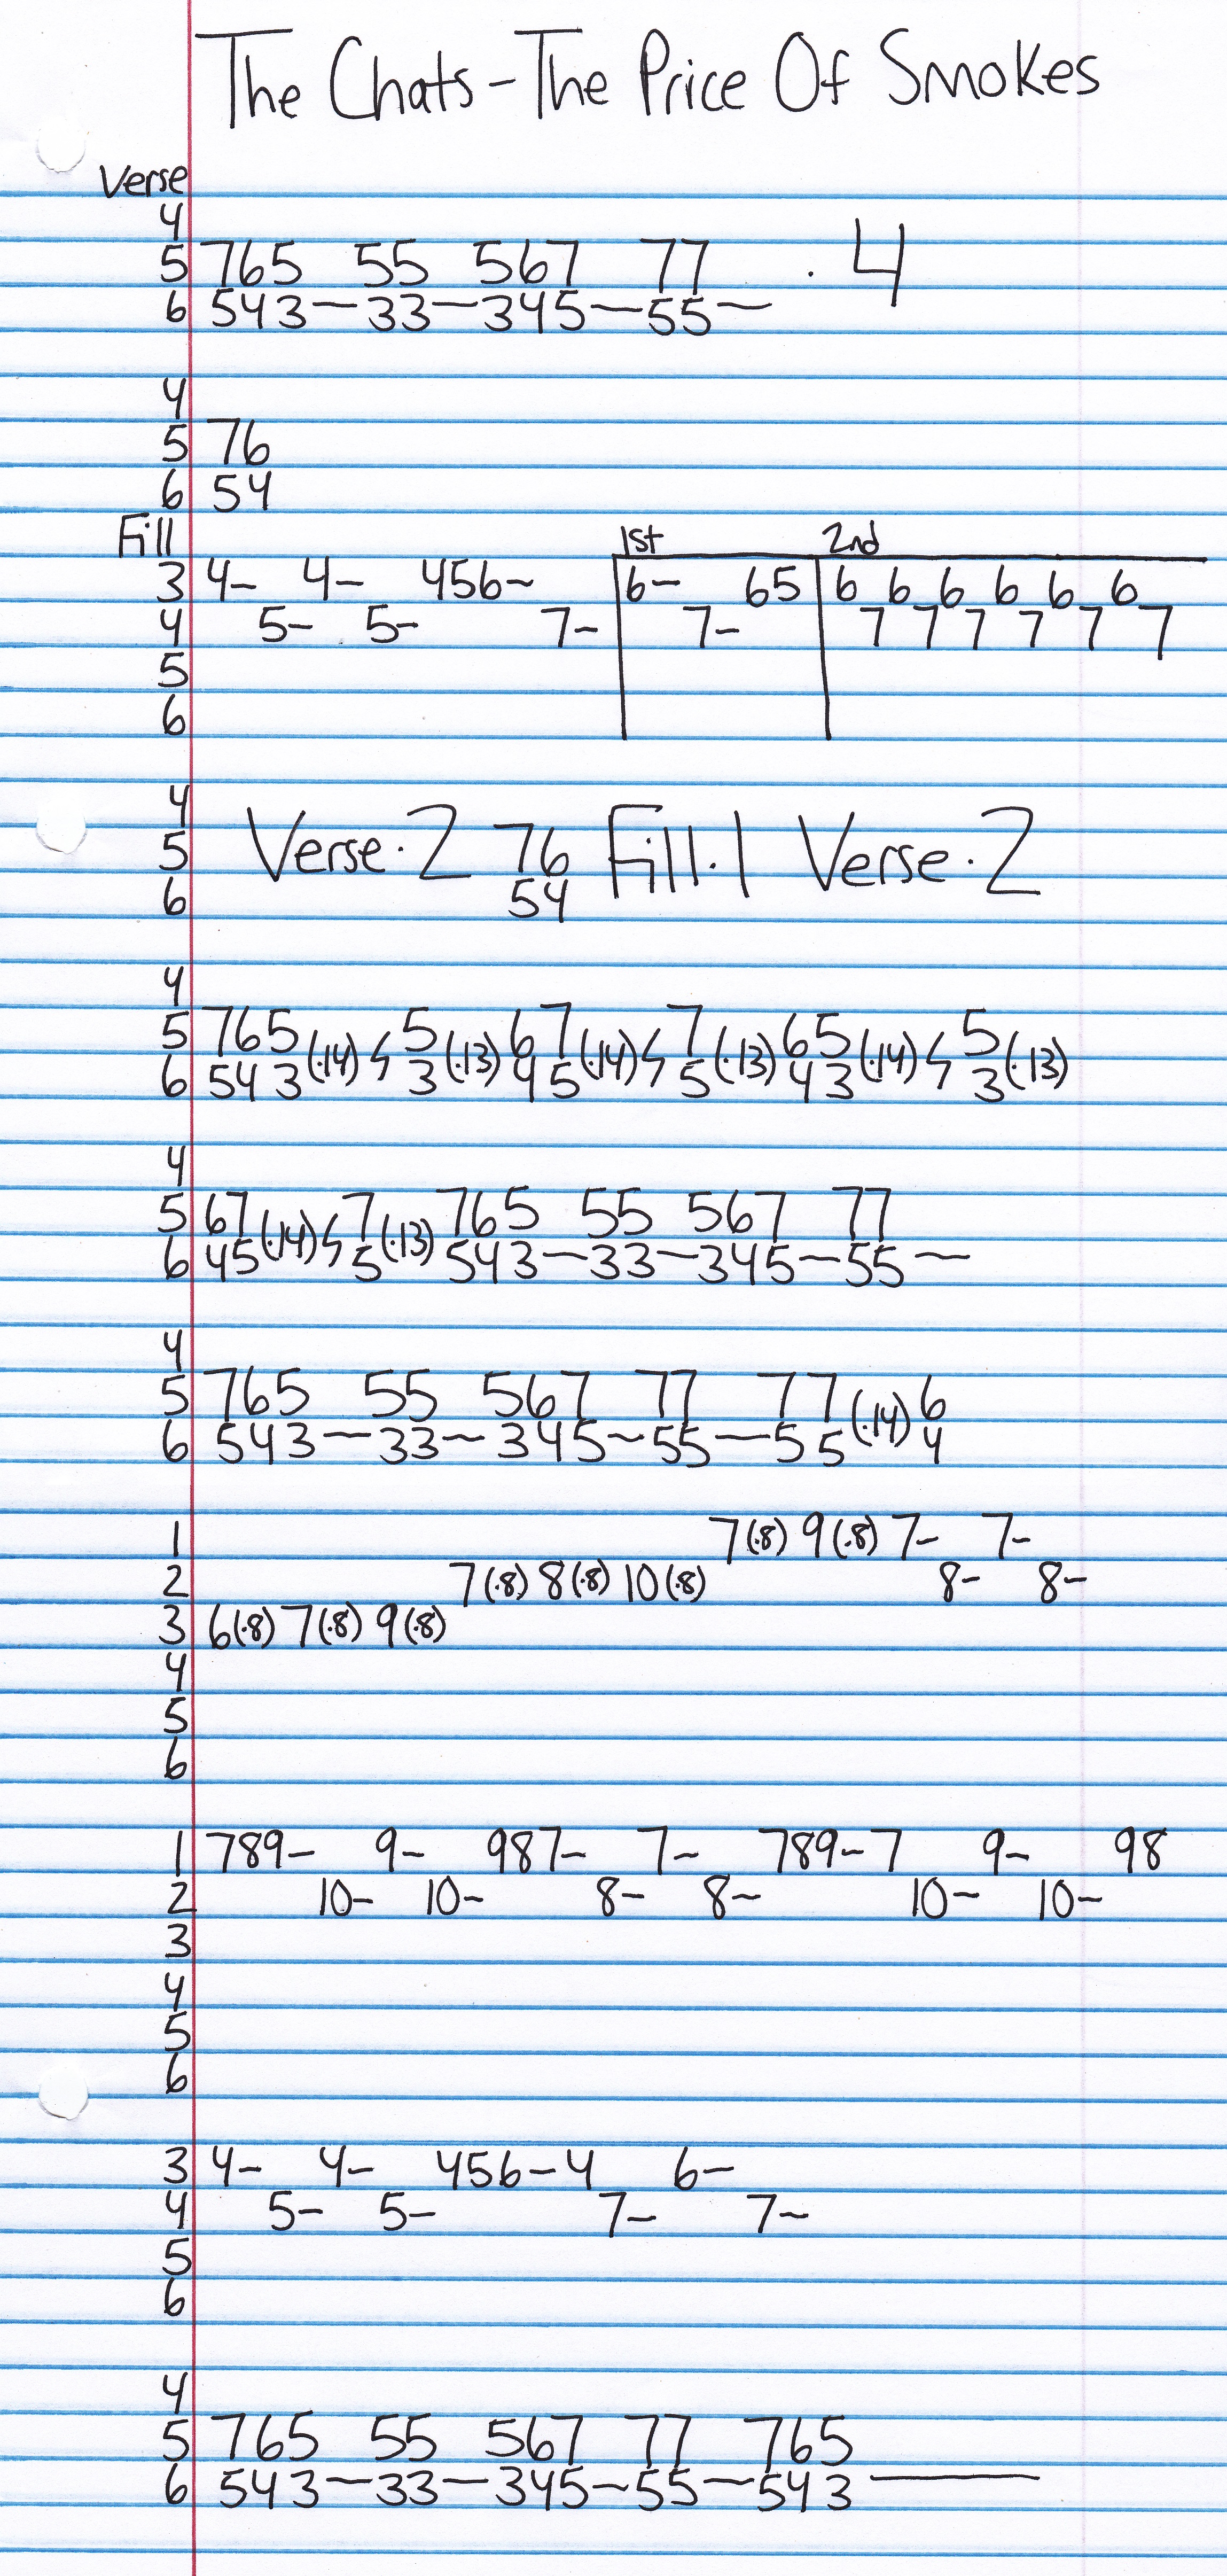 The Chats - The Price Of Smokes
Verse
4
5 765 55 567 77 · 4
6 543—33—345—55—
4
5 76
6 54
Fill 1st 2nd
3 4- 4- 456- 6- 65 6 6 6 6 6 6
4 5- 5- 7- 7- 7 7 7 7 7 7
5
6
4
5 Verse·2 76 Fill·1 Verse·2
6 54
4
5 765(·14) 5(·13) 67(·14) 7(·13) 65(·14) 5(·13)
6 543 3 45 5 43 3
4
5 67(·14) 7(·13) 765 55 567 77
6 45 5 543—33—345—55—
4
5 765 55 567 77 77(·14)6
6 543—33—345—55—55 4
1 7(·8) 9(·8) 7- 7-
2 7(·8) 8(·8) 10(·8) 8- 8-
3 6(·8) 7(·8) 9(·8)
4
5
6
1 789- 9- 987- 7- 789-7 9- 98
2 10- 10- 8- 8- 10- 10-
3
4
5
6
3 4- 4- 456-4 6-
4 5- 5- 7- 7-
5
6
4
5 765 55 567 77 765
6 543—33—345—55—543—